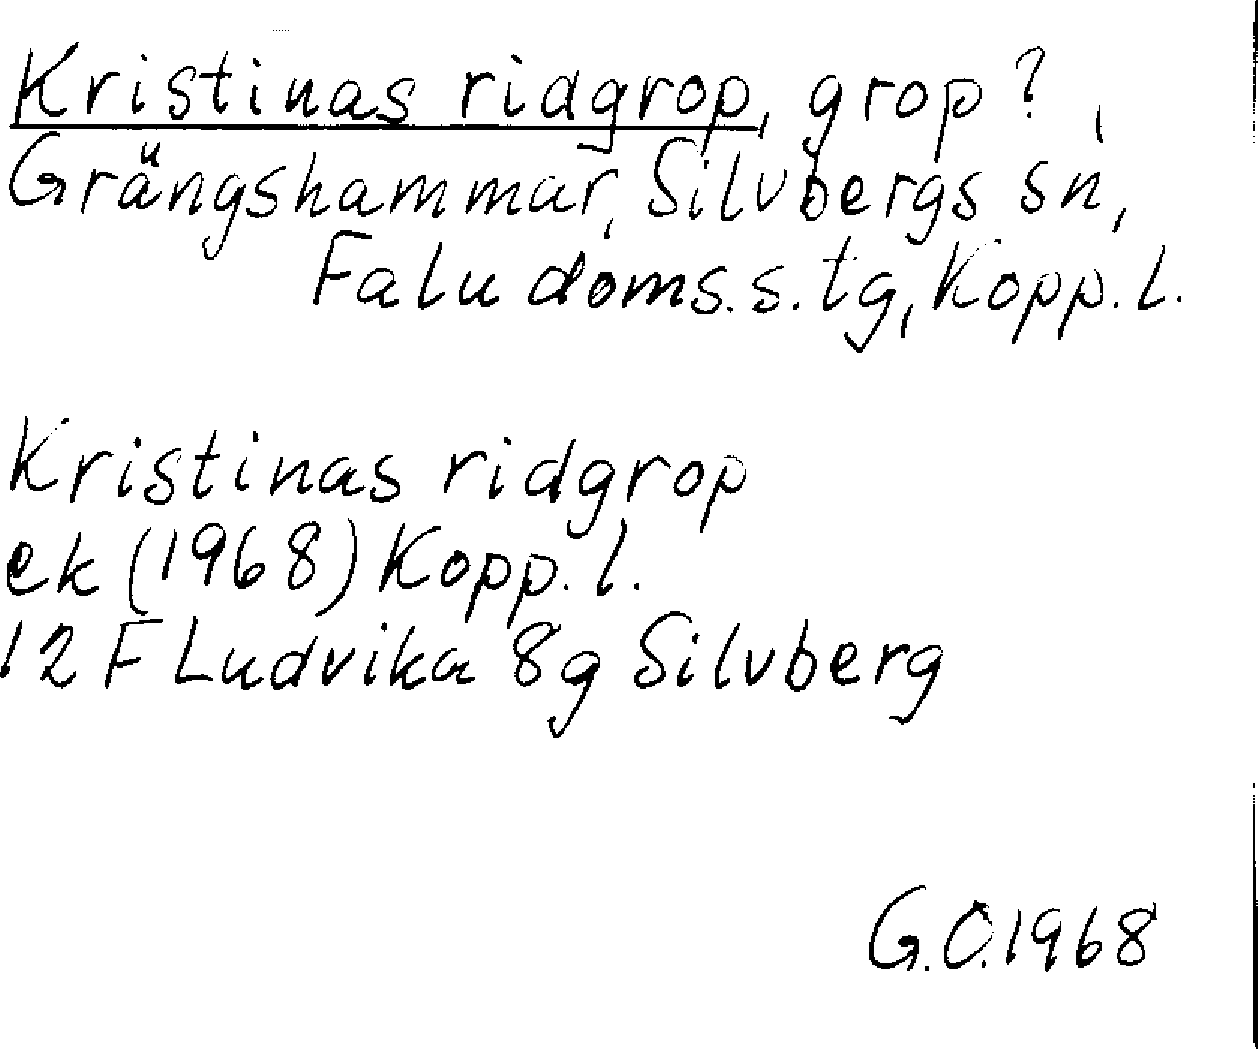 Kristinas ridgrop, grop?,
Grängshammar, Silvbergs sn,
Falu doms.s. tg, Kopp. l.
Kristinas ridgrop
ek (1968) Kopp. l.
12 F Ludvika 8g Silvberg
G.O. 1968